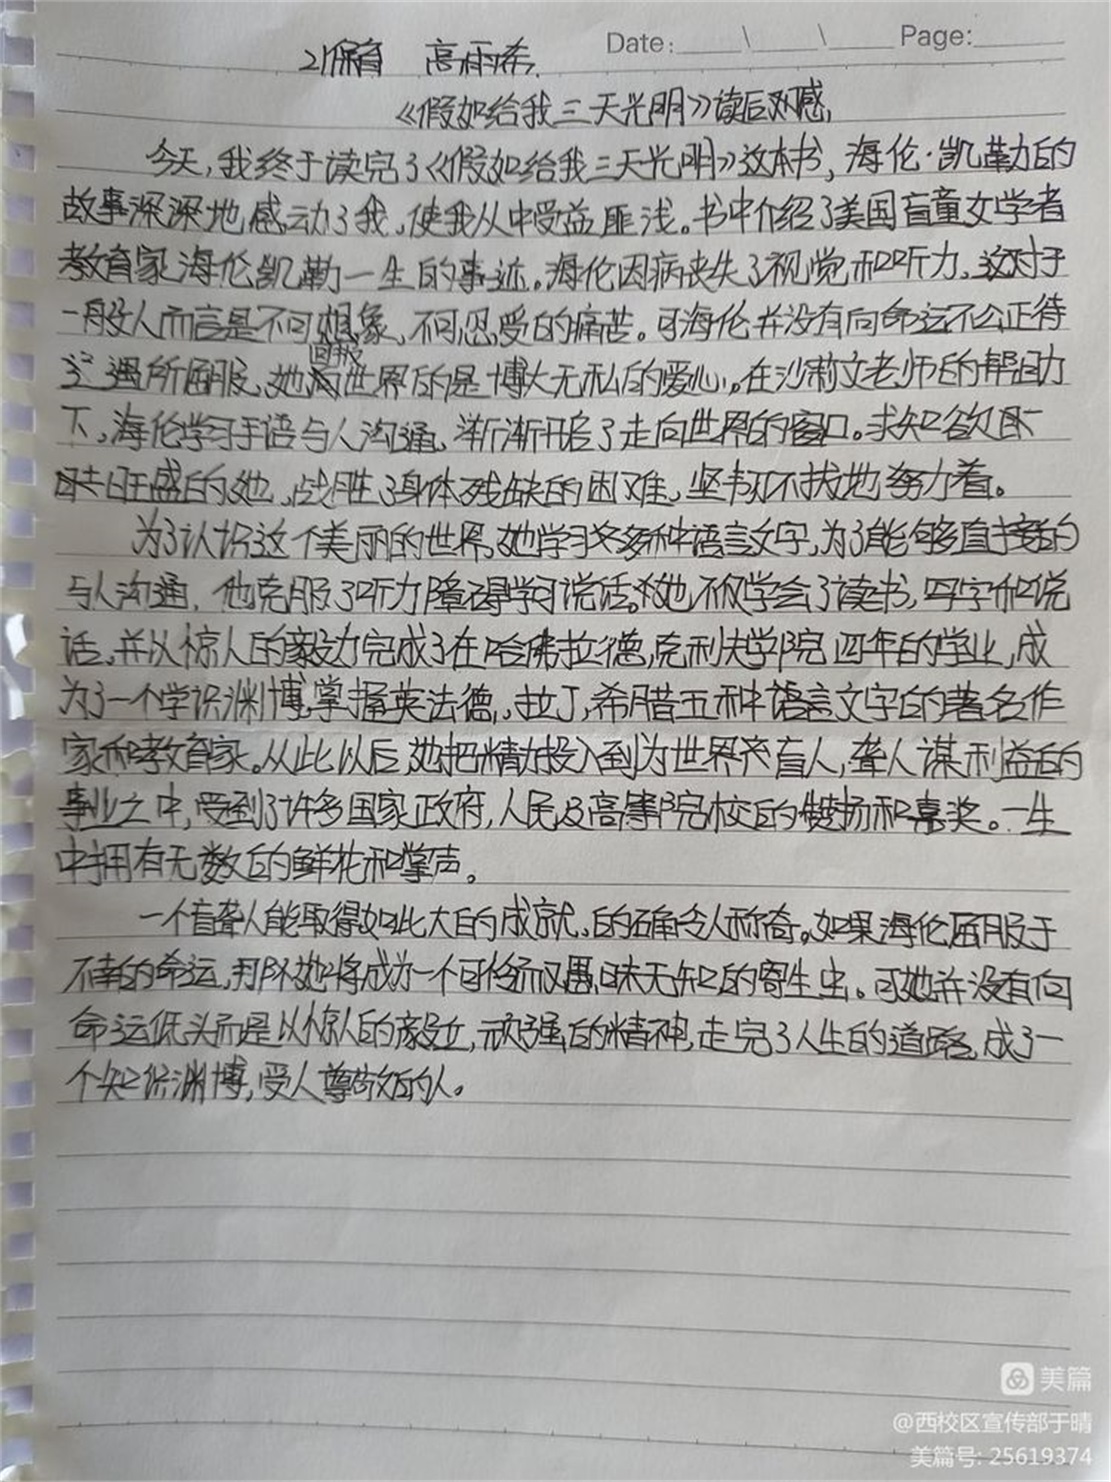 Date: \ \ Page:
21保育 高雨希.
《假如给我三天光明》读后观感,
今天,我终于读完了《假如给我三天光明》这本书,海伦·凯勒的
故事深深地感动了我,使我从中受益匪浅。书中介绍了美国盲童文学者
教育家海伦凯勒一生的事迹。海伦因病丧失了视觉和听力,这对于
一般人而言是不可想象,不可忍受的痛苦。可海伦并没有向命运不公正待
遇所屈服,她回报世界的是博大无私的爱心。在沙莉文老师的帮助
下,海伦学习手语与人沟通,渐渐开启了走向世界的窗口。求知欲
旺盛的她,战胜了身体残缺的困难,坚韧不拔地努力着。
为了认识这个美丽的世界,她学习多种语言文字,为了能够直接的
与人沟通,他克服了听力障碍学习说话。她不仅学会了读书,写字和说
话,并以惊人的毅力完成了在哈佛拉德,克利夫学院四年的学业,成
为了一个学识渊博,掌握英法德,拉丁,希腊五种语言文字的著名作
家和教育家。从此以后,她把精力投入到为世界盲人,聋人谋利益的
事业之中,受到了许多国家政府,人民及高等院校的赞扬和嘉奖。一生
中拥有无数的鲜花和掌声。
一个盲聋人能取得如此大的成就,的确令人称奇。如果海伦屈服于
不幸的命运,那么她将成为一个可怜而又愚昧无知的寄生虫。可她并没有向
命运低头而是以惊人的毅立,顽强的精神,走完了人生的道路,成了一
个知识渊博,受人尊敬的人。
美篇
@西校区宣传部于晴
美篇号: 25619374